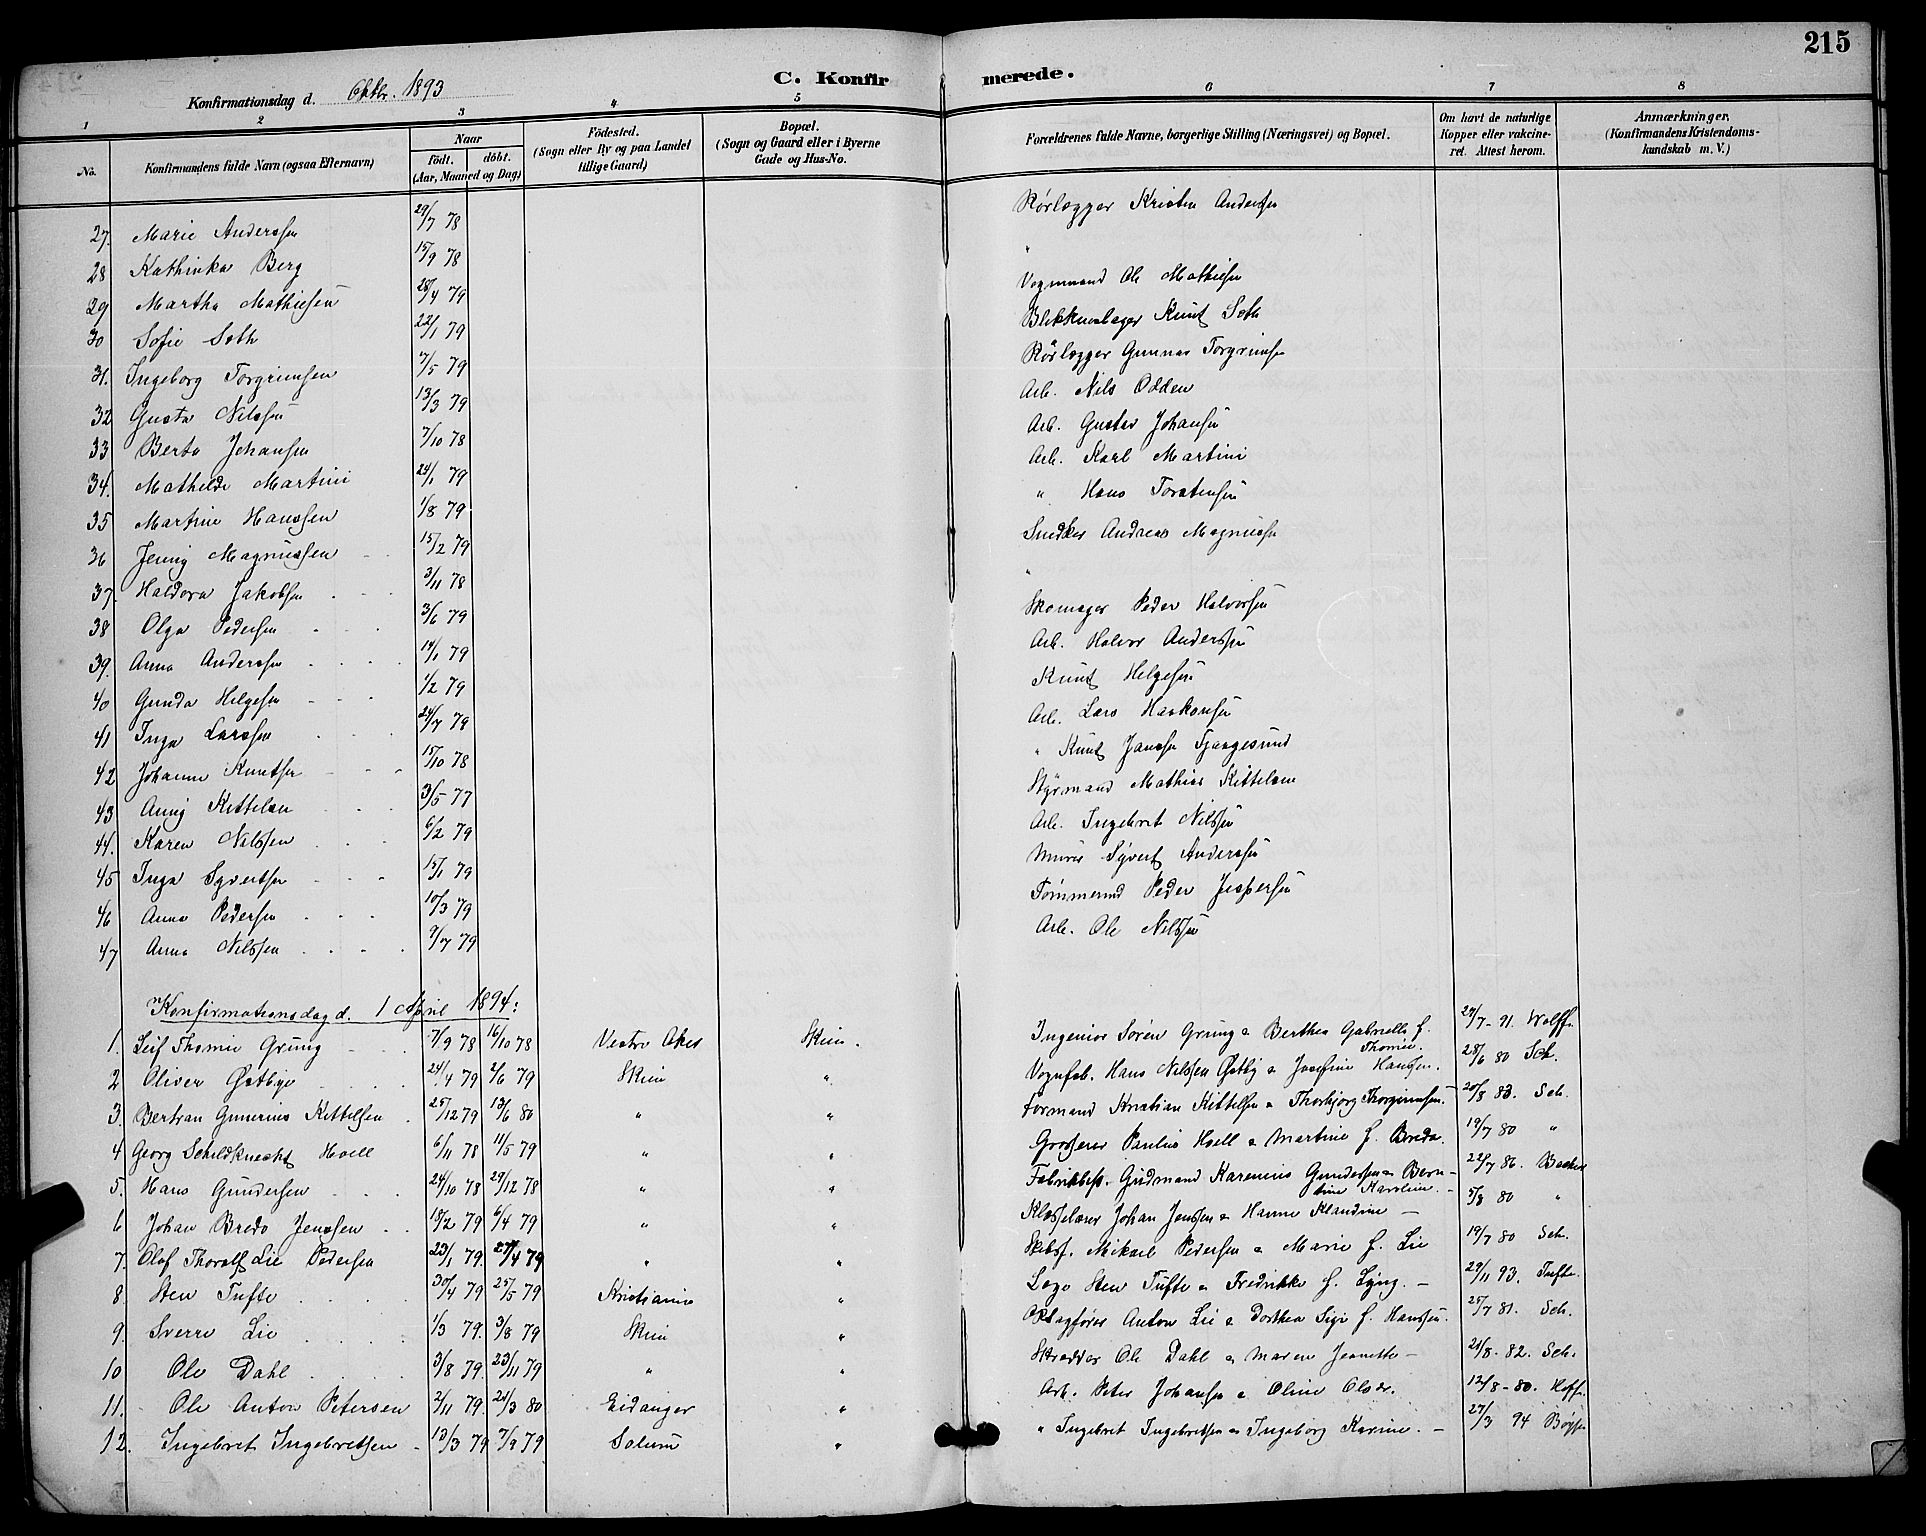 215
C. Konfirmerede.
Konfirmationsdag d. Oktbr. 1893
1 2 3 4 5 6 7 8
No. Konfirmandens fulde Navn (ogsaa Efternavn) Naar født. døbt. (Aar, Maaned og Dag) Fødested. (Sogn eller By og paa Landet tillige Gaard) Bopæl. (Sogn og Gaard eller i Byerne Gade og Hus-No. Forældrenes fulde Navne, borgerlige Stilling (Næringsvei) og Bopæl. Om havt de naturlige Kopper eller vakcineret. Attest herom. Anmærkninger. (Konfirmandens Kristendomskundskab m. V.)
27. Marie Anderssen 29/7 78 Rørlægger Kristen Anderssen
28 Kathinka Berg 15/9 78 "
29 Martha Mathiesen 28/4 79 Vognmand Ole Mathiesen
30 Sofie Seth 22/1 79 Blikkenslager Knut Seth
31. Ingeborg Torgrimsen 7/5 79 Rörlægger Gunnar Torgrimsen
32 Gusta Nilssen 13/3 79 Arb. Nils Odden
33 Berta Johansen 7/10 78 Arb. Gustav Johansen
34. Mathilde Martini 24/1 79 Arb. Karl Martini
35 Martine Hanssen 1/8 79 " Hans Torstensen
36 Jenny Magnussen 15/2 79 Snedker Andreas Magnussen
37. Haldora Jakobsen 3/11 78 "
38 Olga Pedersen 3/6 79 Skomager Peder Halvorsen
39. Anna Anderssen 14/1 79 Arb. Halvor Anderssen
40 Gunda Helgesen 1/2 79 Knut Helgesen
41 Inga Larssen 24/7 79 Arb. Lars Haakonsen
42 Johanne Knutsen 15/10 78 " Knut Janssen Fjaagesund
43 Anny Kittelsen 3/5 77 Styrmand Mathias Kittelsen
44. Karen Nilssen 6/2 79 Arb. Ingebret Nilssen
45 Inga Syvertsen 15/1 79 Murer Syvert Anderssen
46 Anna Pedersen 10/3 79 Tømmermd Peder Jespersen
47 Anna Nilssen 9/7 79 Arb. Ole Nilssen
Konfirmationsdag d. 1 April 1894:
1. Leif Thomie Grung 7/9 78 16/10 78 Vestre Aker Skien. Ingeniør Sören Grung & Berthea Gabrielle f. Thomie. 24/7-91. Wolff.
2 Oliver Østbye 24/4 79 2/6 79 Skien " Vognfab. Hans Nilssen Østby & Josefine Hanssen. 28/6 80 Sch.
3. Bertran Gunerius Kittelsen 25/12 79 13/6 80 " " Formand Kristian Kittelsen & Thorbjørg Thorgrimsen. 20/8 83. Sch.
4 Georg Schildknecht Hoell 6/11 78 11/5 79 " " Grosserer Paulus Hoell & Martine f. Bredo. 19/7 80 "
5. Hans Gundersen 24/10 78 29/12 78 " " Fabrikbest. Gudmand Karenius Gundersen & Berntine Karoline. 22/7 86.
6 Johan Bredo Jenssen 18/2 79 6/4 79 " " Klasselærer Johan Jenssen & Hanne Klaudine — 5/8 80 "
7. Olaf Thoralf Lie Pedersen 23/1 79. 27/4 79 " " Skibsf. Mikael Pedersen & Marie f. Lie 19/7 80 Sch.
8. Sten Tufte 30/4 79 25/5 79 Kristiania " Læge Sten Tufte & Fredrikke f. Lyng. — 29/11 93. Tufte.
9. Sverre Lie 1/3 79. 3/8 79 Skien " Anton Lie & Dorthea Sigi f. Hanssen. 25/7 81. Sch.
10 Ole Dahl 3/8 79. 23/11 79 " " Skrædder Ole Dahl & Maren Jeanette — 21/8-82. Sch.
11. Ole Anton Petersen 2/11 79. 21/3 80 Eidanger " Arb. Peter Johansen & Oline Olsdr. 12/8-80. Hoff.
12. Ingebret Ingebretsen 13/3 79. 7/9 79 Solum " " Ingebret Ingebretsen & Ingeborg Karine. — 27/3 94